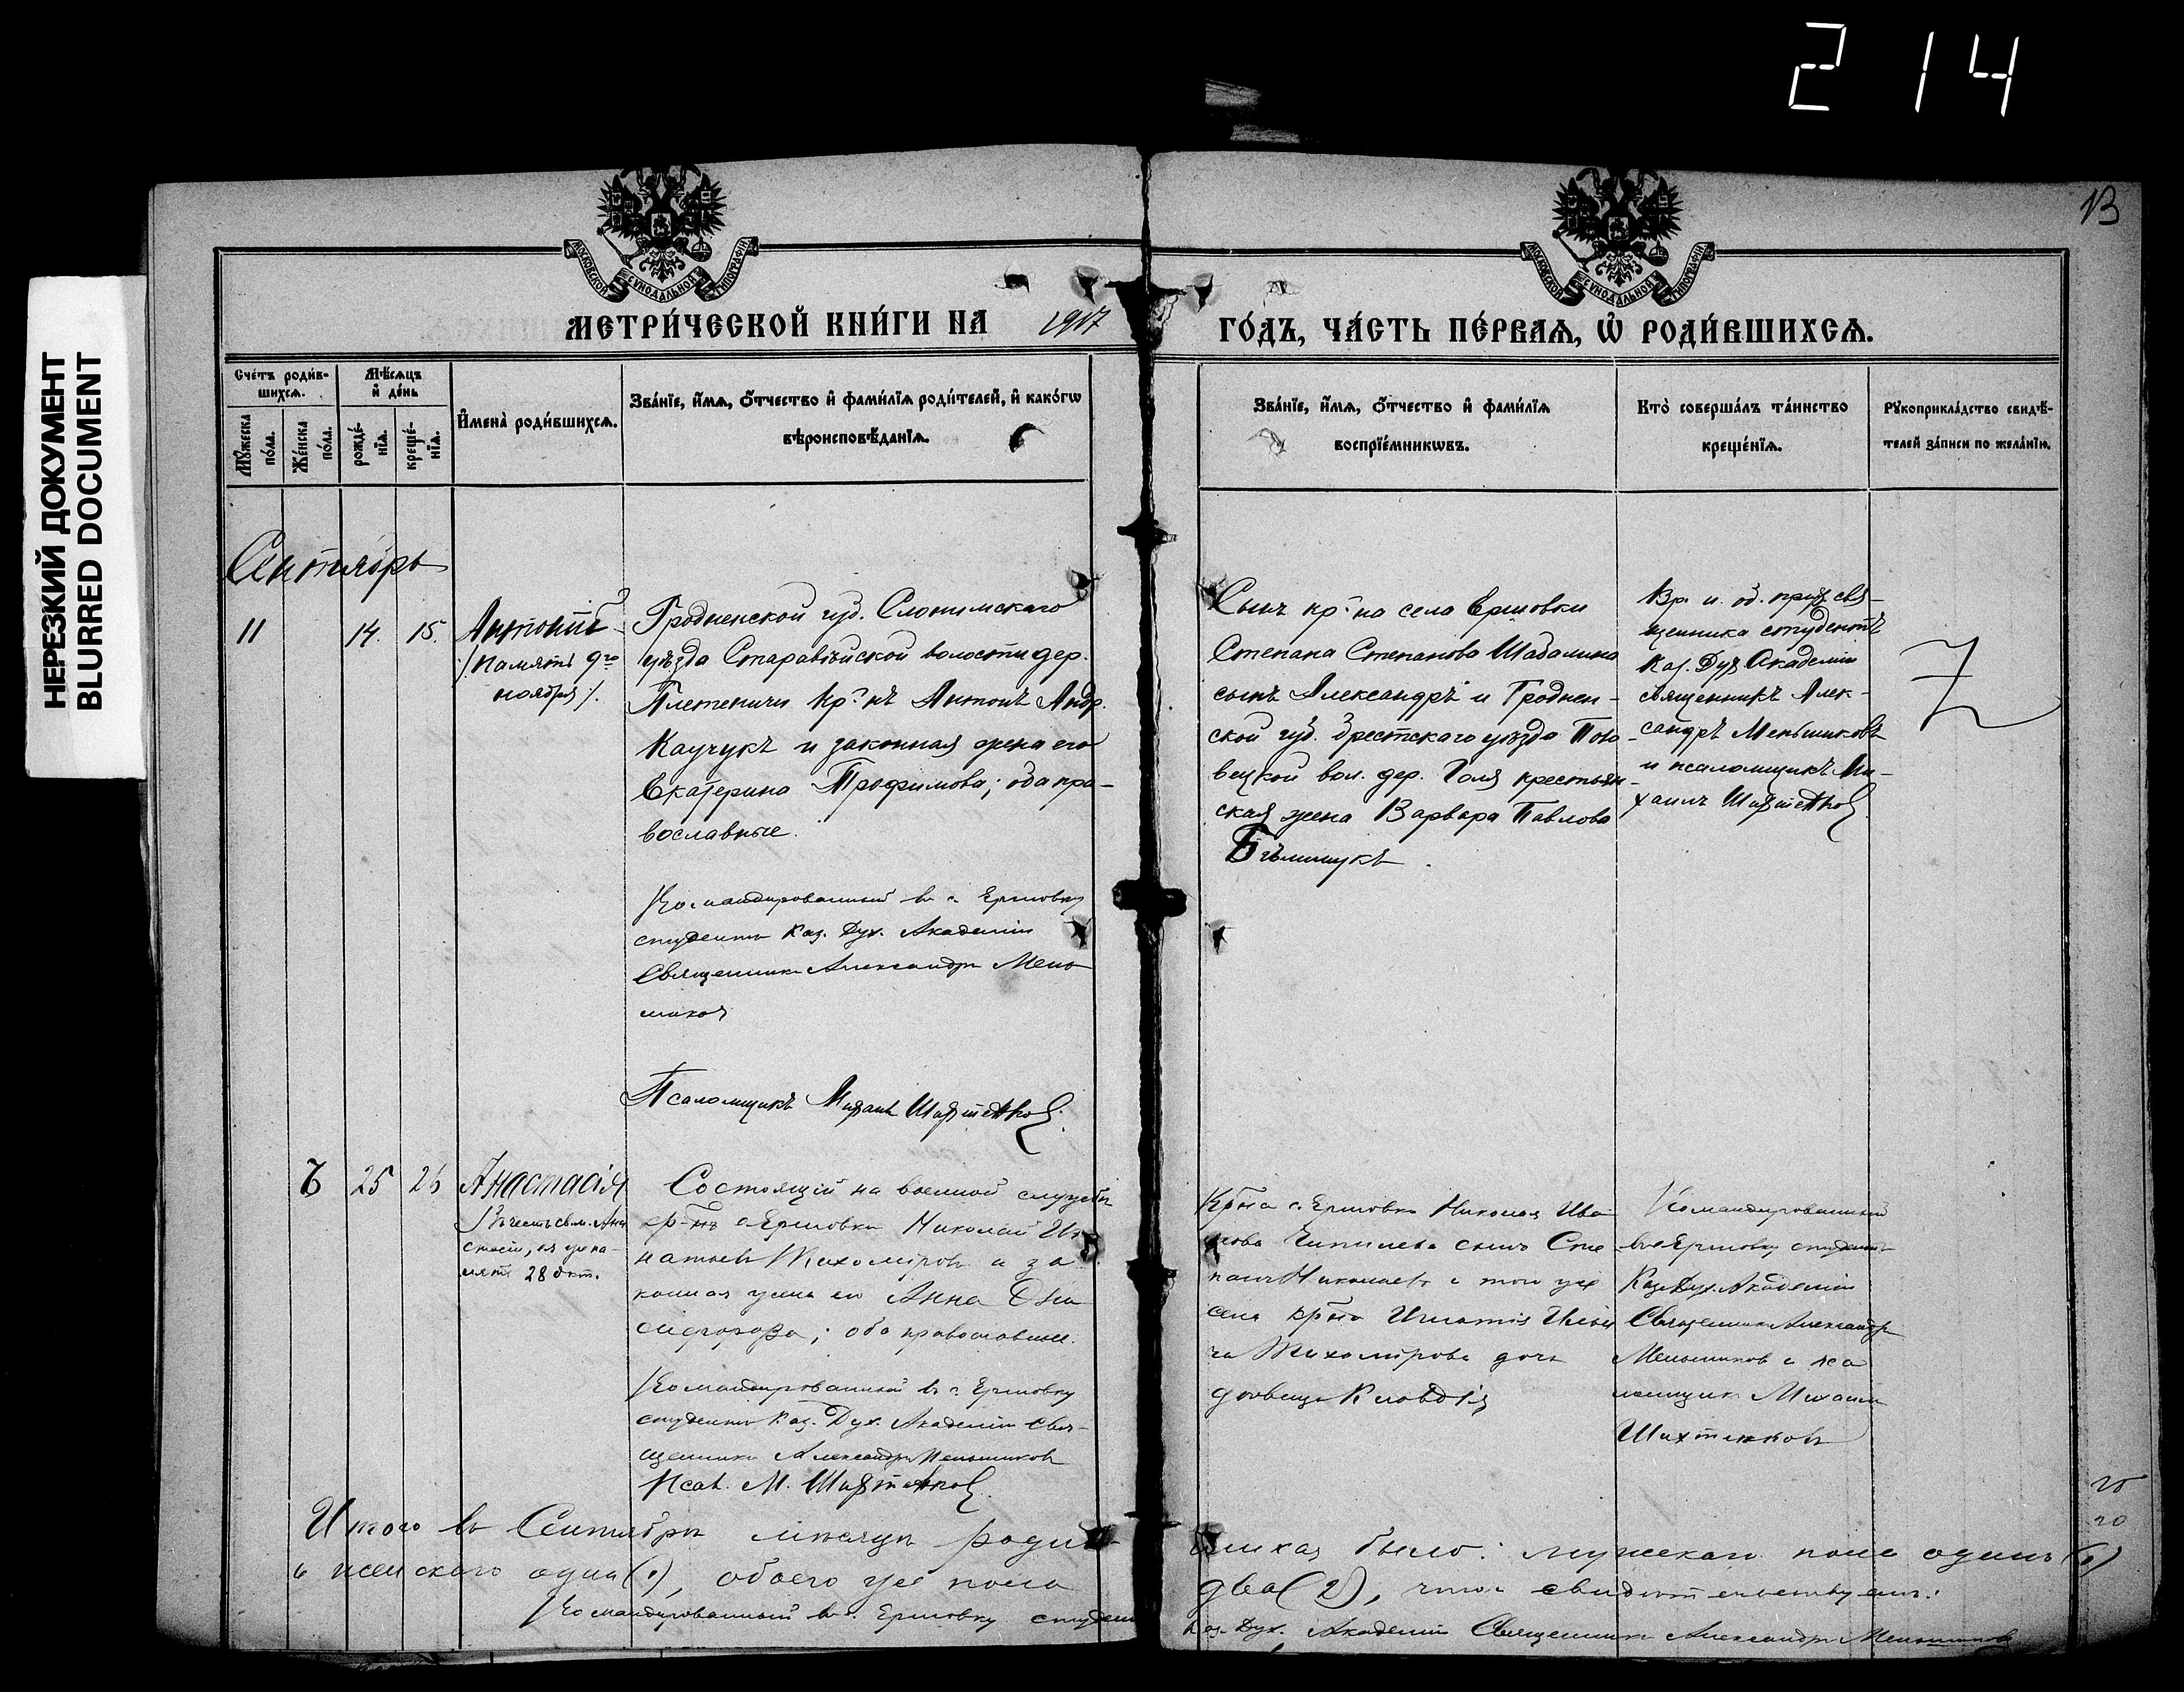 214
13
НЕРЕЗКИЙ ДОКУМЕНТ
BLURRED DOCUMENT
МОСКОВСКОЙ СУНОДАЛЬНОЙ ТИПОГРАФІИ
МОСКОВСКОЙ СУНОДАЛЬНОЙ ТИПОГРАФІИ
МЕТРИ́ЧЕСКОЙ КНИ́ГИ НА 1917
ГО́ДЪ, ЧА́СТЬ ПЕ́РВАѦ, Ѡ РОДИ́ВШИХСѦ.
Сче́тъ роди́вшихсѧ.
Мꙋ́жеска по́ла.
Же́нска по́ла.
Мѣ́сѧцъ и де́нь
рожде́нїѧ.
креще́нїѧ.
И҆мена̀ роди́вшихсѧ.
Зва́нїе, и҆́мѧ, о҆́тчество и҆ фами́лїѧ роди́телей, и҆ како́гѡ
вѣроисповѣ́данїѧ.
Зва́нїе, и҆́мѧ, о҆́тчество и҆ фами́лїѧ
воспрїе́мникѡвъ.
Кто̀ соверша́лъ та́инство
креще́нїѧ.
Рꙋкоприкла́дство свидѣ́-
телей за́писи по жела́нїю.
Сентябрь
11
14.
15.
Антоній
/память 9го
ноября/.
Гродненской губ. Слонимскаго
уѣзда Старавѣйской волости дер.
Плетеничи кр-нъ Антонъ Андр.
Каучукъ и законная жена его
Екатерина Трофимова; оба пра-
вославные.
Командированный в с. Ершовку
студентъ Каз. Дух. Академіи
Священникъ Александръ Мень
шиковъ
Псаломщикъ Михаилъ Шахтенковъ.
Сынъ кр-на села Ершовки
Степана Степанова Шабалина
сынъ Александръ и Гроднен-
ской губ. Брестскаго уѣзда Поло-
вецкой вол. дер. Голя крестьян-
ская жена Варвара Павлова
Вр. и. об. прих. свя-
щенника студентъ
Каз. Дух. Академіи
священникъ Алек-
сандръ Меньшиковъ
и псаломщикъ Ми-
хаилъ Шахтенковъ
7
25
26
Анастасія
28 Окт.
Состоящій на военной службѣ
кр-нъ с. Ершовки Николай Иг
натьевъ Тихоміровъ и за
конная жена его Анна
оба православные.
Командированный въ с. Ершовку
студентъ Каз. Дух. Академіи Свя-
щенникъ Александръ Меньшиковъ
Псал. М. Шахтенковъ.
Кр-на с. Ершовки Николая Ива
нова сынъ Сте
панъ Николаевъ и того же
села кр-на Игнатія Ильи
ча Тихомірова дочь
дѣвица Клавдія
Командированный
въ с. Ершовку студентъ
Каз. Дух. Академіи
Священникъ Александръ
Меньшиковъ и пса
ломщикъ Михаилъ
Шахтенковъ
20
Итого въ Сентябрѣ мѣсяцѣ роди
вшихся было: мужескаго пола одинъ (1)
и женскаго одна (1), обоего же пола
два (2), что и свидѣтельствуемъ:
Командированный въ с. Ершовку студентъ
Каз. Дух. Академіи Священникъ Александръ Меньшиковъ